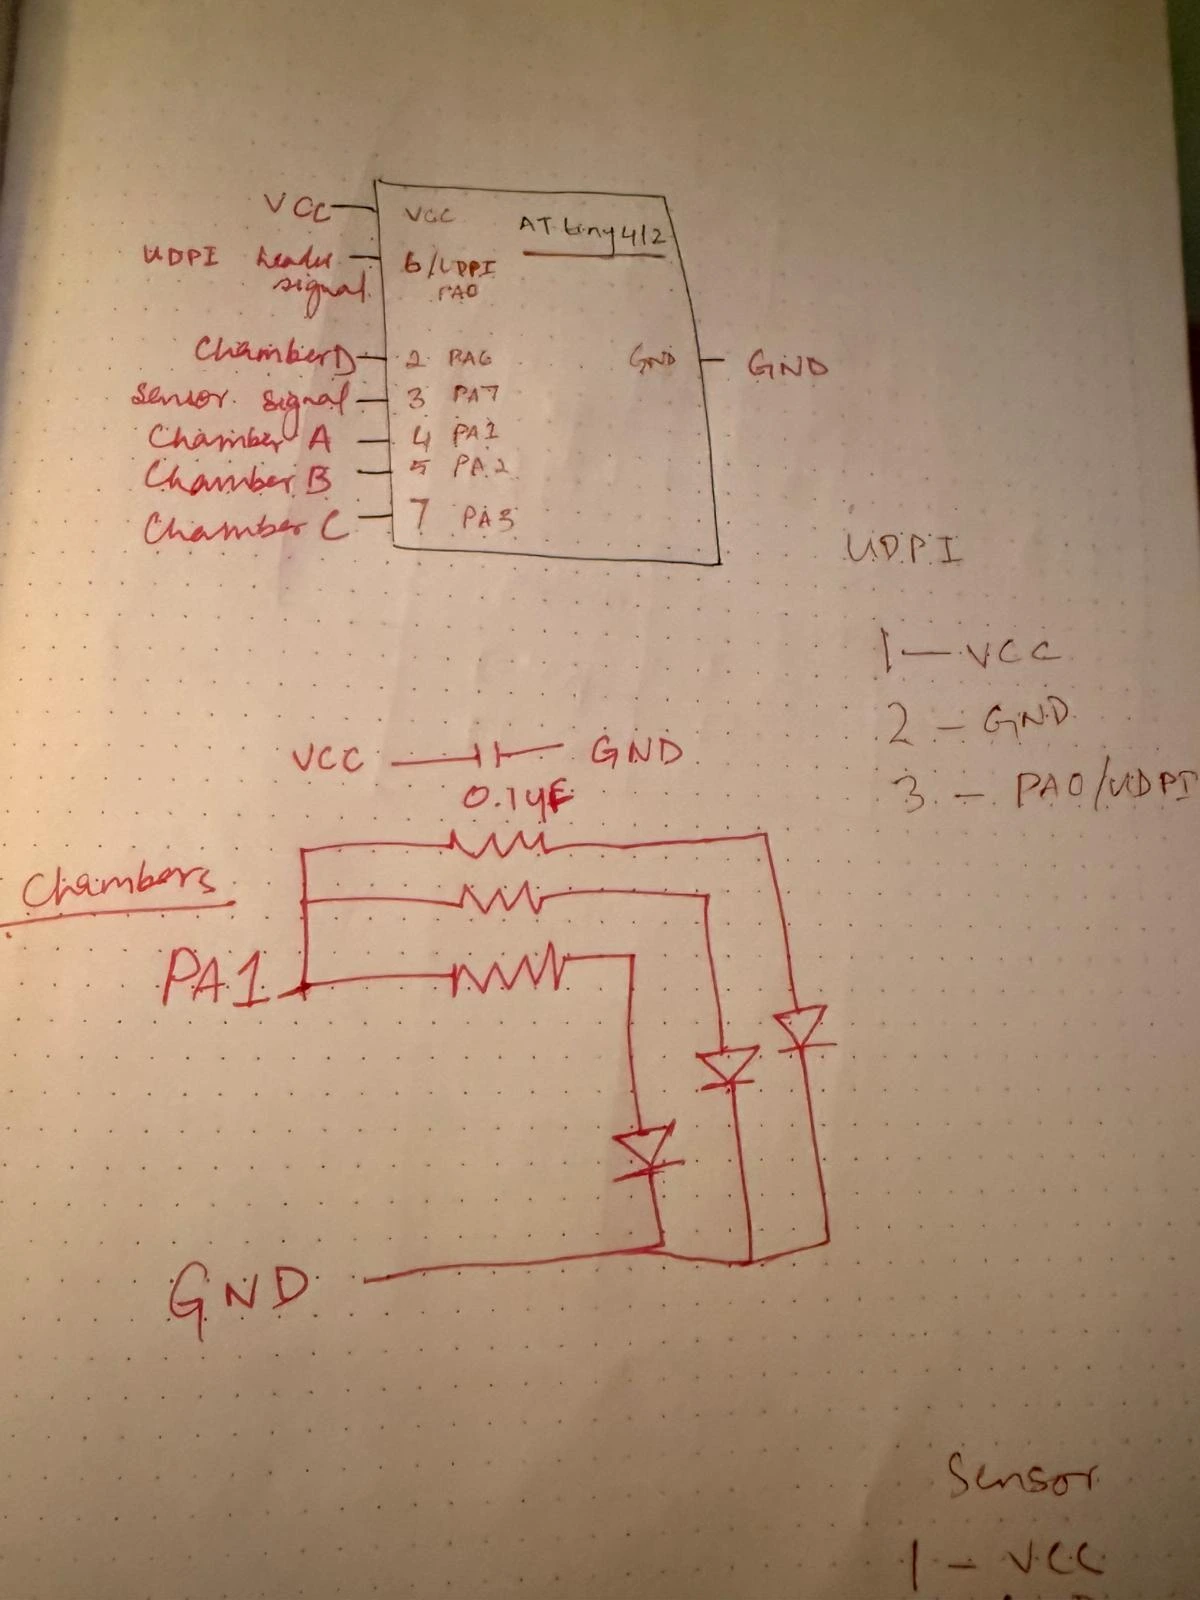 VCC VCC ATtiny412
UDPI header 6/UDPI
signal PA0
Chamber D 2 PA6 GND GND
Sensor signal 3 PA7
Chamber A 4 PA1
Chamber B 5 PA2
Chamber C 7 PA3
UDPI
1 — VCC
2 - GND
3 - PA0/UDPI
VCC GND
0.1µF
Chambers
PA1
GND
Sensor
1 - VCC